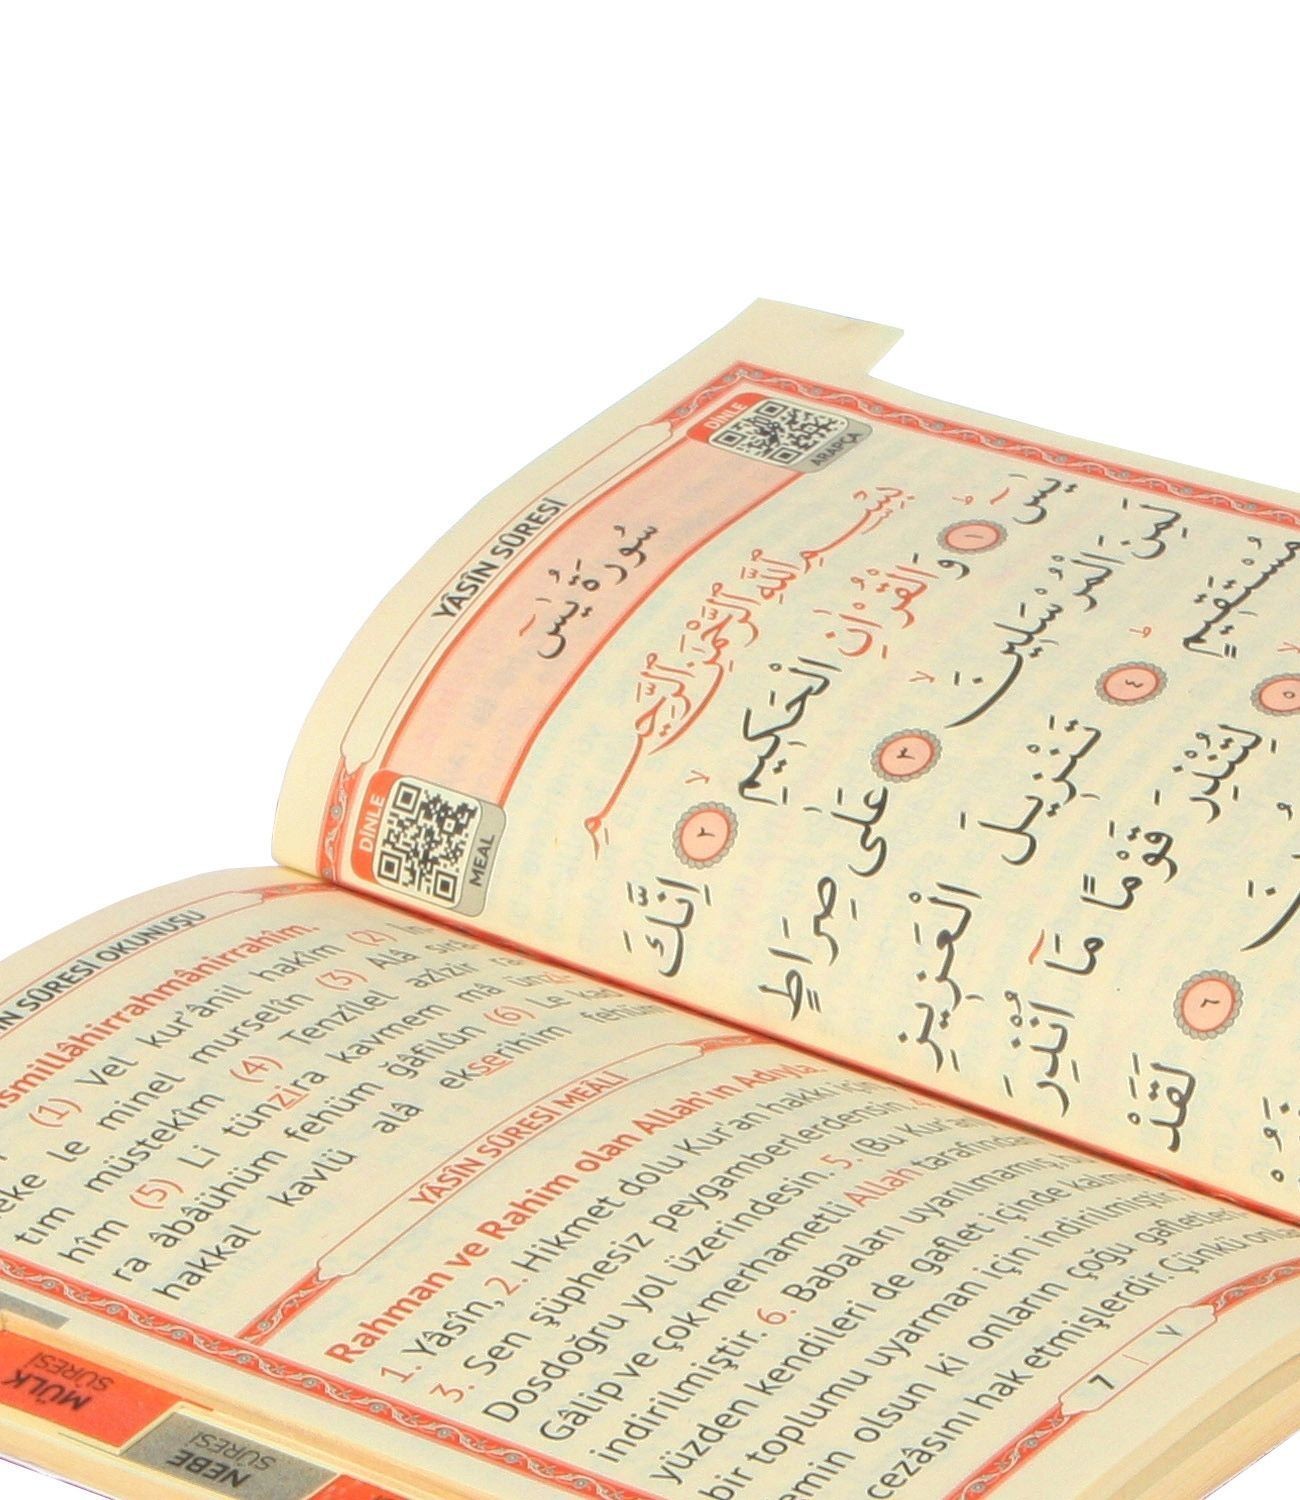 YÂSÎN SÛRESİ
DİNLE
ARAPÇA
سُورَةُ يٰسٓ
DİNLE
MEAL
بِسْمِ اللّٰهِ الرَّحْمٰنِ الرَّحِيمِ
يٰسٓ ١ وَالْقُرْاٰنِ الْحَكِيمِ ٢ اِنَّكَ
لَمِنَ الْمُرْسَلِينَ ٣ عَلٰى صِرَاطٍ
مُسْتَقِيمٍ ٤ تَنْزِيلَ الْعَزِيزِ
٥ لِتُنْذِرَ قَوْمًا مَٓا اُنْذِرَ
٦ لَقَدْ
SÛRESİ OKUNUŞU
(1) Vel kur'ânil hakîm (2) İn-
neke le minel murselîn (3) Alâ sırâ-
tım müstekîm (4) Tenzîlel azîzir
hîm (5) Li tünzira kavmem mâ
ra âbâühüm fehüm ğâfilûn (6) Le
hakkal kavlü alâ ekserihim fehüm
YÂSÎN SÛRESİ MEÂLİ
Rahman ve Rahim olan Allah'ın Adıyla.
1. Yâsîn, 2. Hikmet dolu Kur'an hakkı için
3. Sen şüphesiz peygamberlerdensin.
Dosdoğru yol üzerindesin. 5. (Bu Kur'an
Gâlip ve çok merhametli Allah tarafından
indirilmiştir. 6. Babaları uyarılmamış,
yüzden kendileri de gaflet içinde
bir toplumu uyarman için indirilmiştir.
emin olsun ki onların çoğu
cezâsını hak etmişlerdir. Çünkü
7
٧
MÜLK
SÛRESİ
NEBE
SÛRESİ